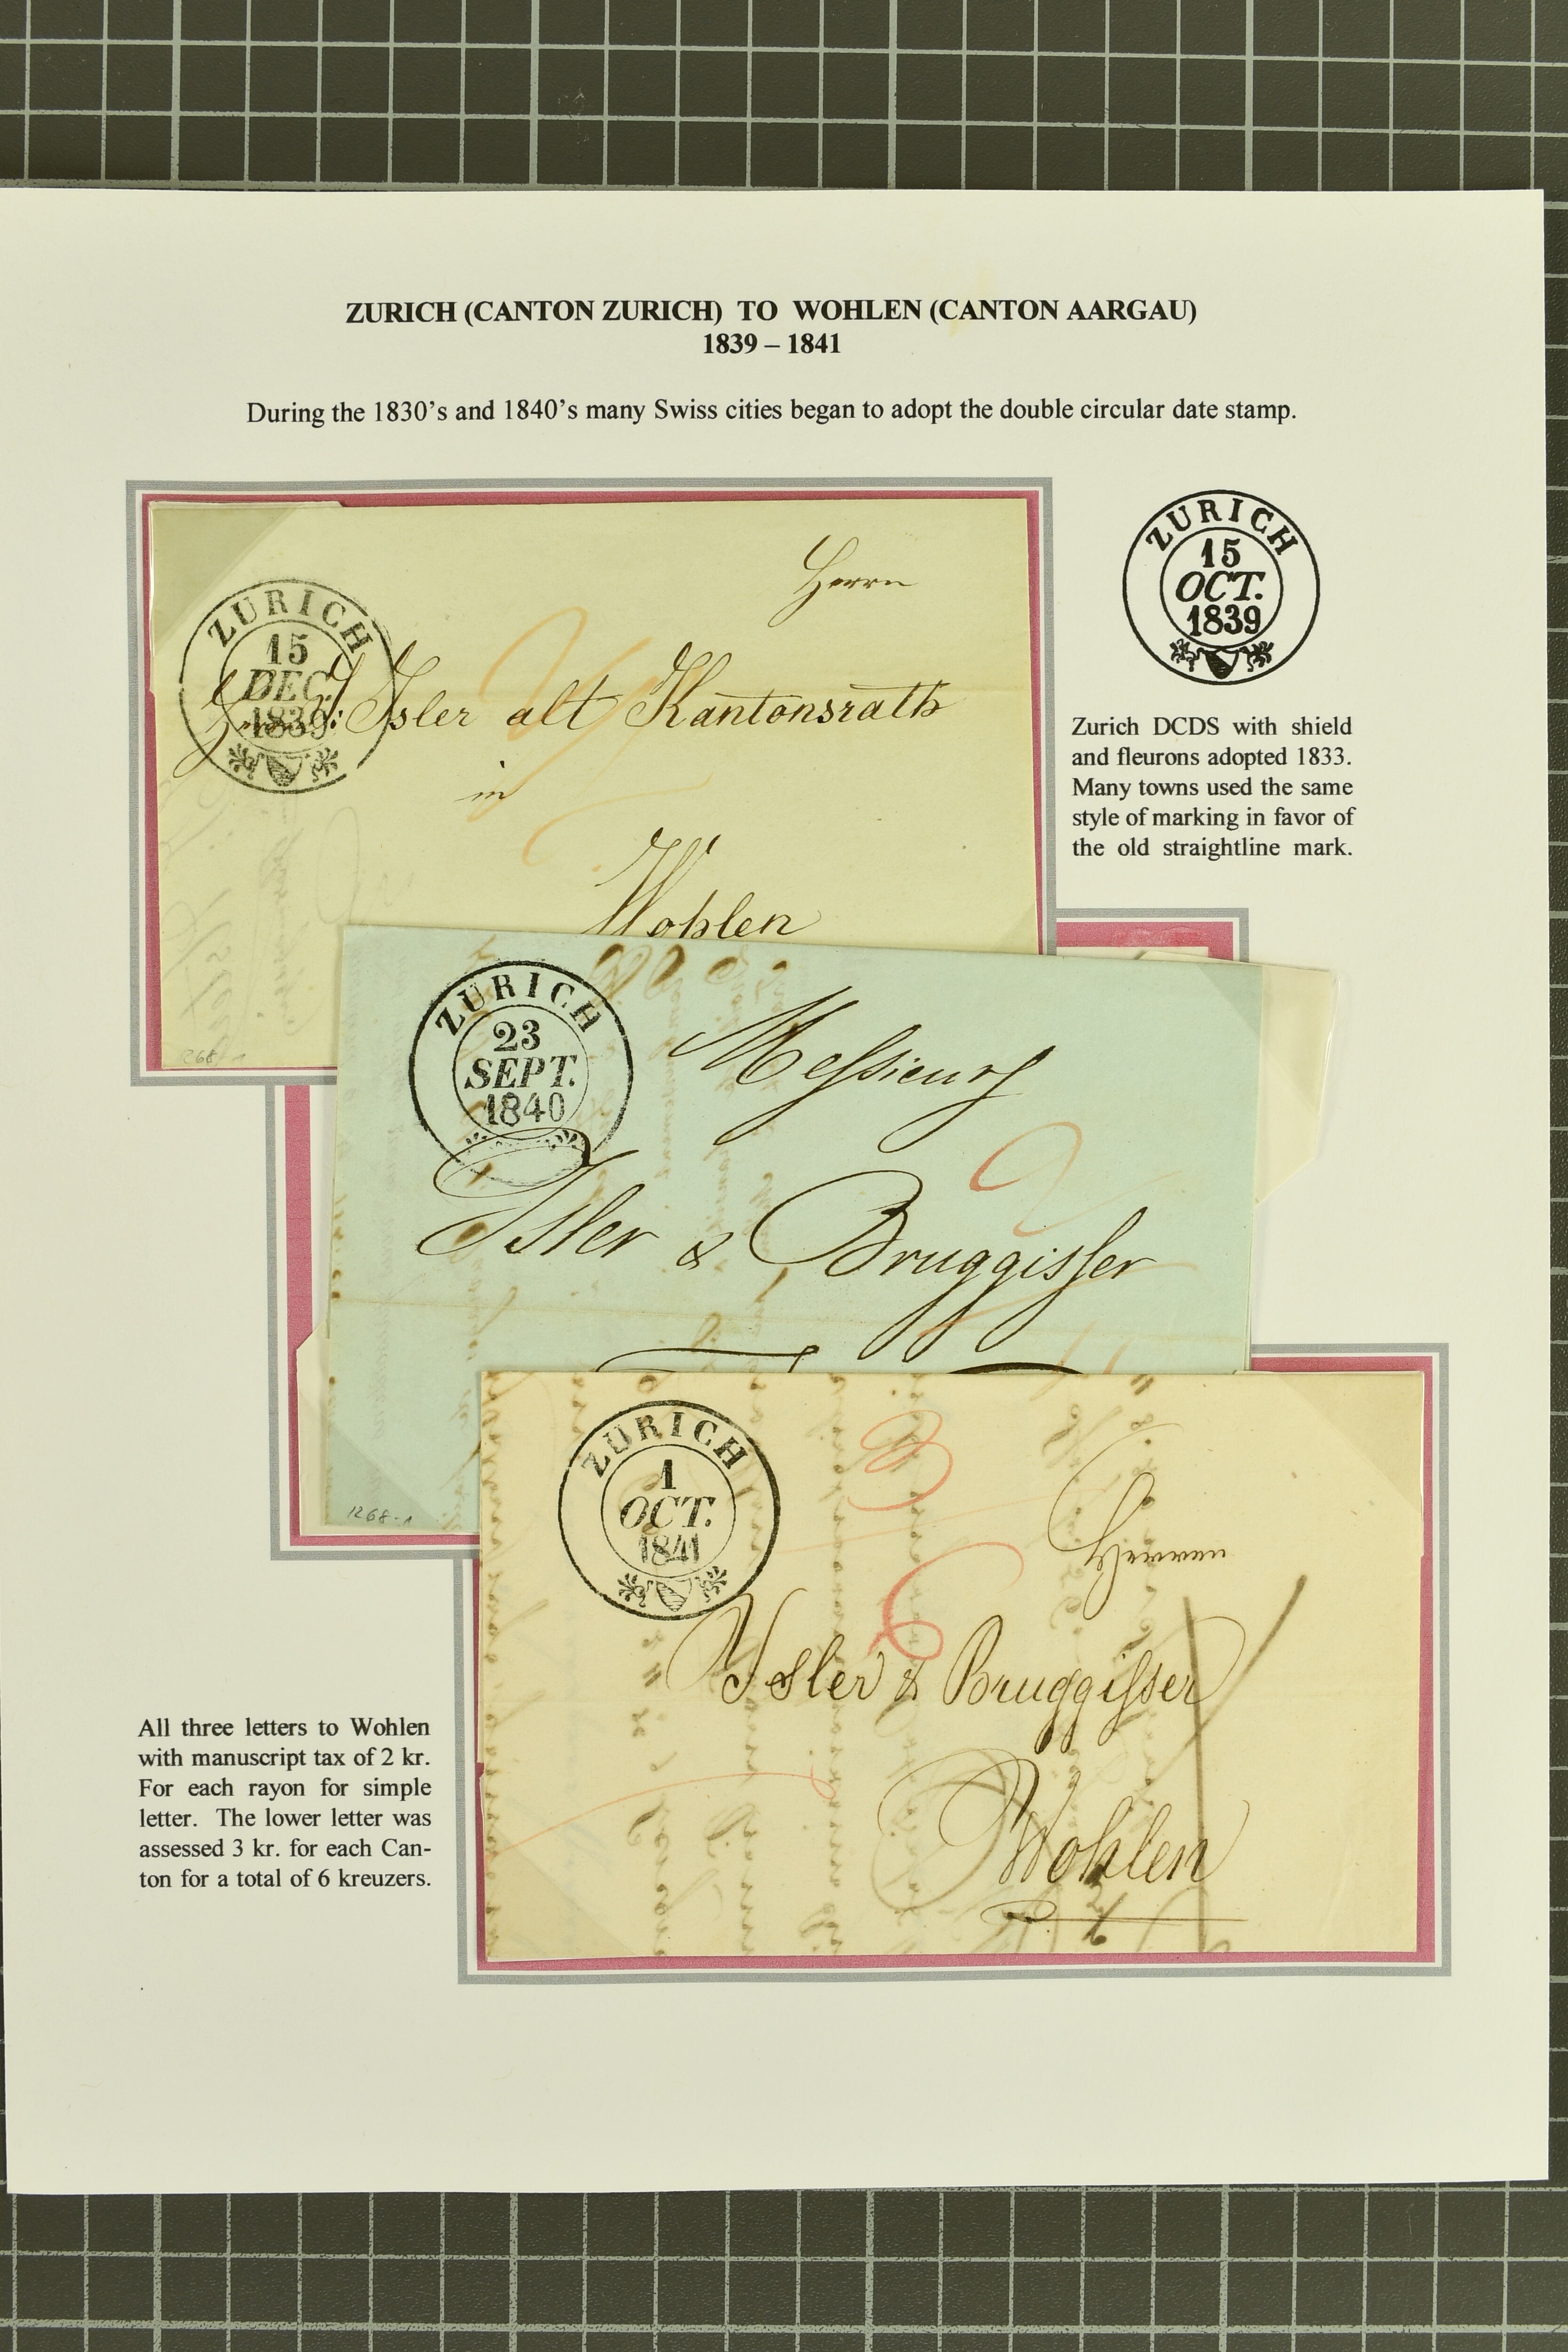 ZURICH (CANTON ZURICH) TO WOHLEN (CANTON AARGAU)
1839 – 1841
During the 1830's and 1840's many Swiss cities began to adopt the double circular date stamp.
ZURICH
15
OCT.
1839
Zurich DCDS with shield
and fleurons adopted 1833.
Many towns used the same
style of marking in favor of
the old straightline mark.
ZURICH
15
DEC.
1839
Herrn
Isler alt Kantonsrath
in
Wohlen
1268-1
ZURICH
23
SEPT.
1840
Messieurs
Isler & Bruggisser
2
1268-1
ZURICH
1
OCT.
1841
3
6
Herren
Ysler & Bruggisser
Wohlen
All three letters to Wohlen
with manuscript tax of 2 kr.
For each rayon for simple
letter. The lower letter was
assessed 3 kr. for each Can-
ton for a total of 6 kreuzers.